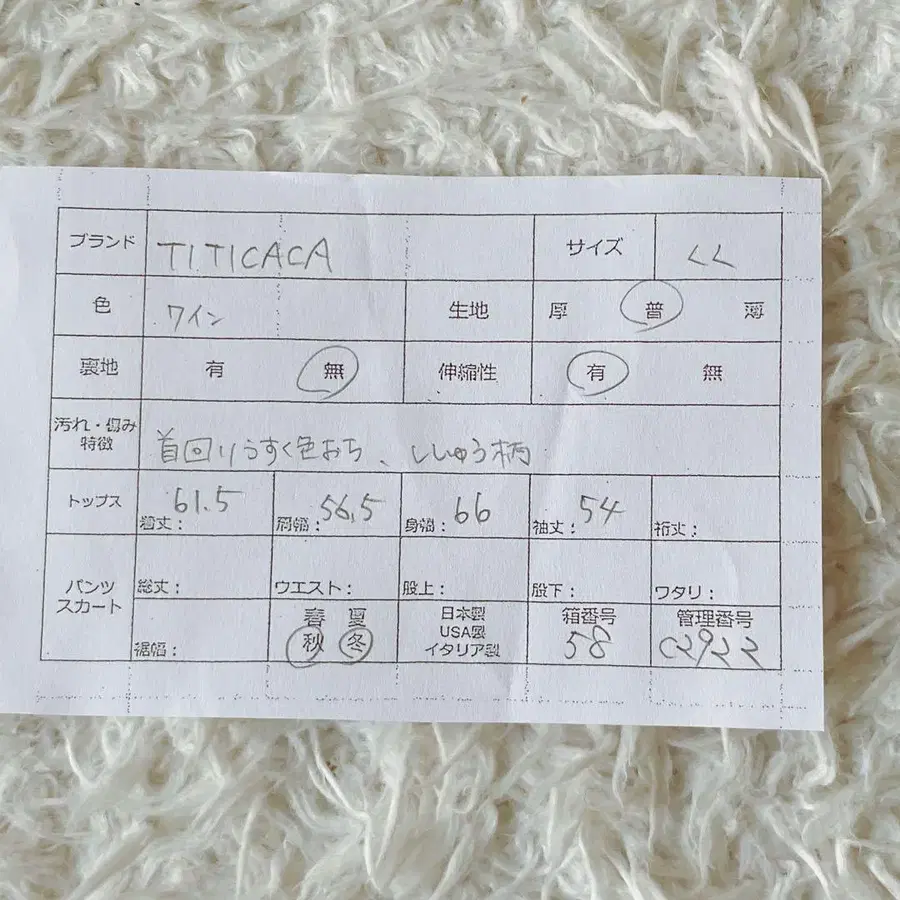 ブランド TITICACA サイズ LL
色 ワイン 生地 厚 普 薄
裏地 有 無 伸縮性 有 無
汚れ・傷み
特徴 首回りうすく色おち、ししゅう柄
トップス 着丈: 61.5 肩幅: 56.5 身幅: 66 袖丈: 54 裄丈:
パンツ
スカート 総丈: ウエスト: 股上: 股下: ワタリ:
裾幅: 春 夏 秋 冬 日本製 USA製 イタリア製 箱番号 58 管理番号 C2922